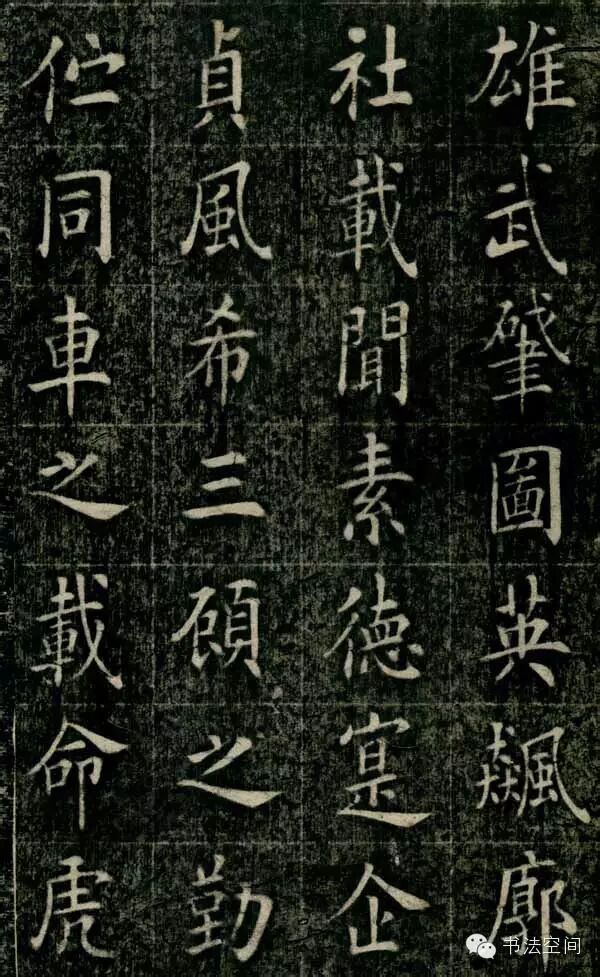 雄武肇圖英飆廓
社載聞素德寔企
貞風希三頋之勤
伫同車之載命虎
书法空间